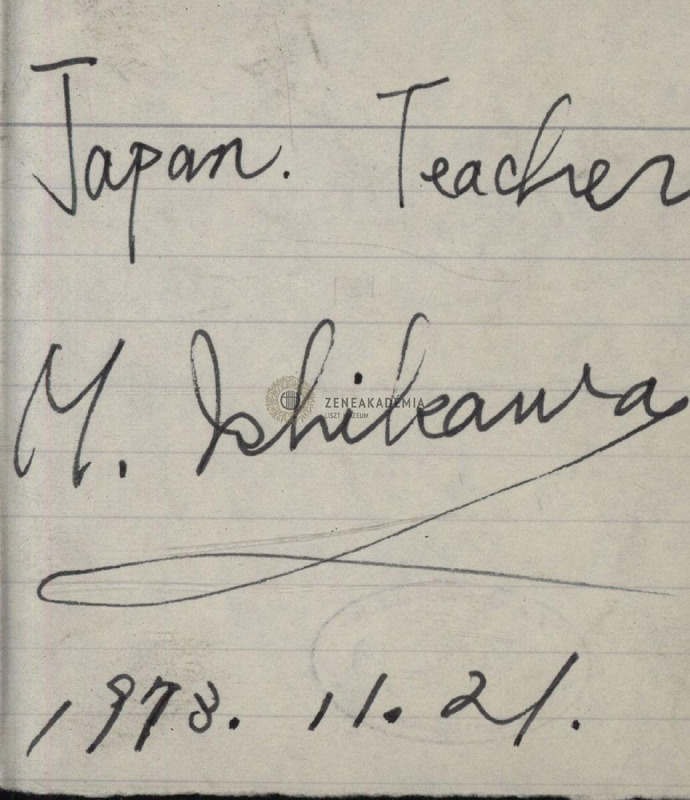 Japan. Teacher
M. Ishikawa
ZENEAKADÉMIA
LISZT MÚZEUM
1973. 11. 21.